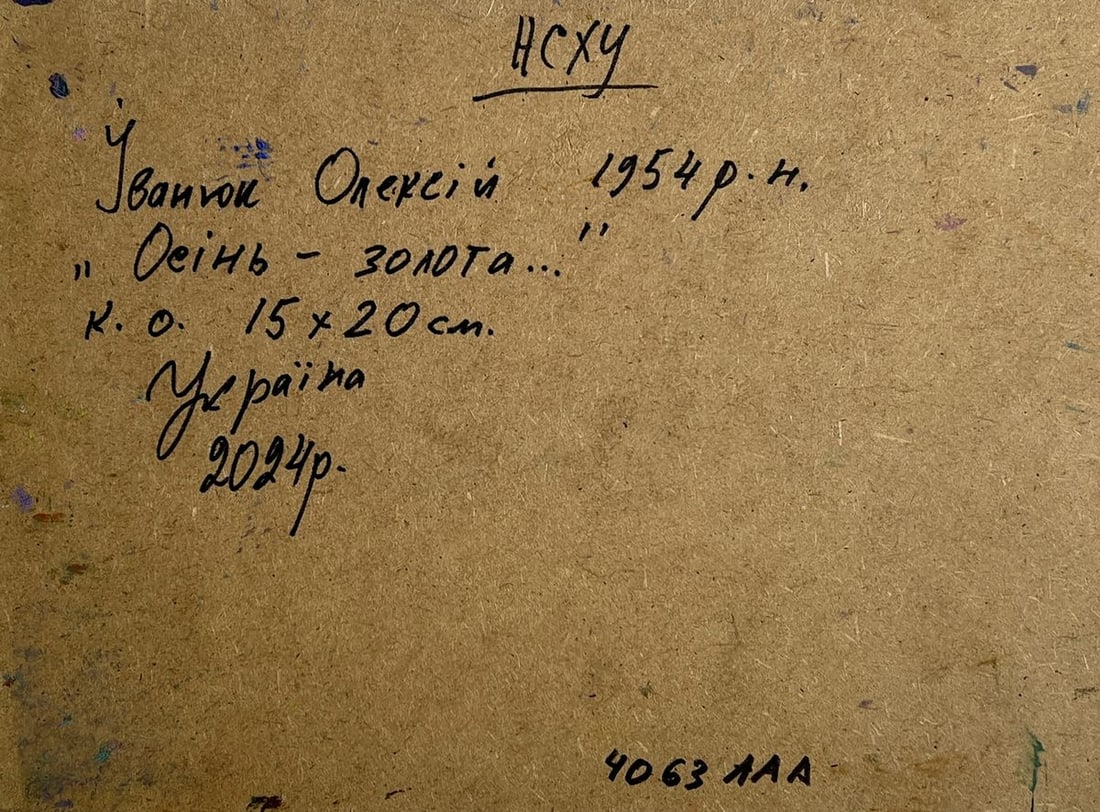 НСХУ
Іванюк Олексій 1954 р. н.
„ Осінь - золота... "
к. о. 15 x 20 см.
Україна
2024р.
4063 ЛАА